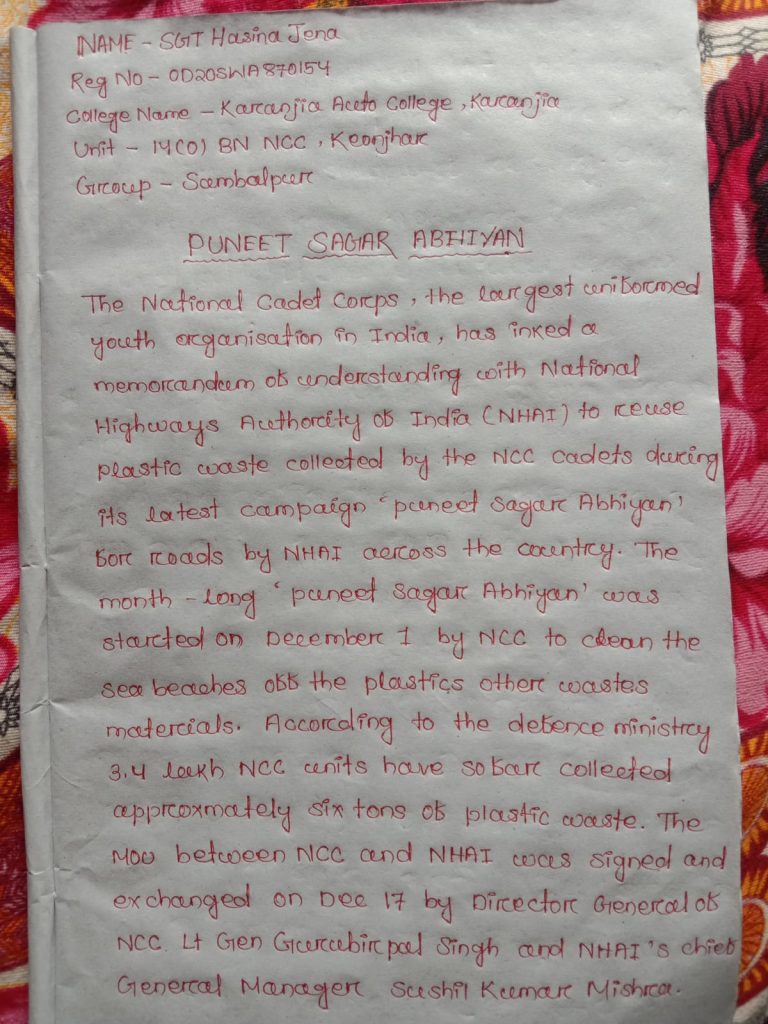 NAME - SGT Hasina Jena
Reg No - OD20SWA870154
College Name - Karanjia Auto College, Karanjia
Unit - 14(O) BN NCC, Keonjhar
Group - Sambalpur
PUNEET SAGAR ABHIYAN
The National Cadet Corps, the largest uniformed
youth organisation in India, has inked a
memorandum of understanding with National
Highways Authority of India (NHAI) to reuse
plastic waste collected by the NCC cadets during
its latest campaign 'puneet Sagar Abhiyan'
for roads by NHAI across the country. The
month - long 'puneet Sagar Abhiyan' was
started on December 1 by NCC to clean the
sea beaches off the plastics other wastes
materials. According to the defence ministry
3.4 lakh NCC units have so far collected
approxmately six tons of plastic waste. The
MOU between NCC and NHAI was signed and
exchanged on Dec 17 by Director General of
NCC Lt Gen Gurubirpal Singh and NHAI's chief
General Manager Sushil Kumar Mishra.